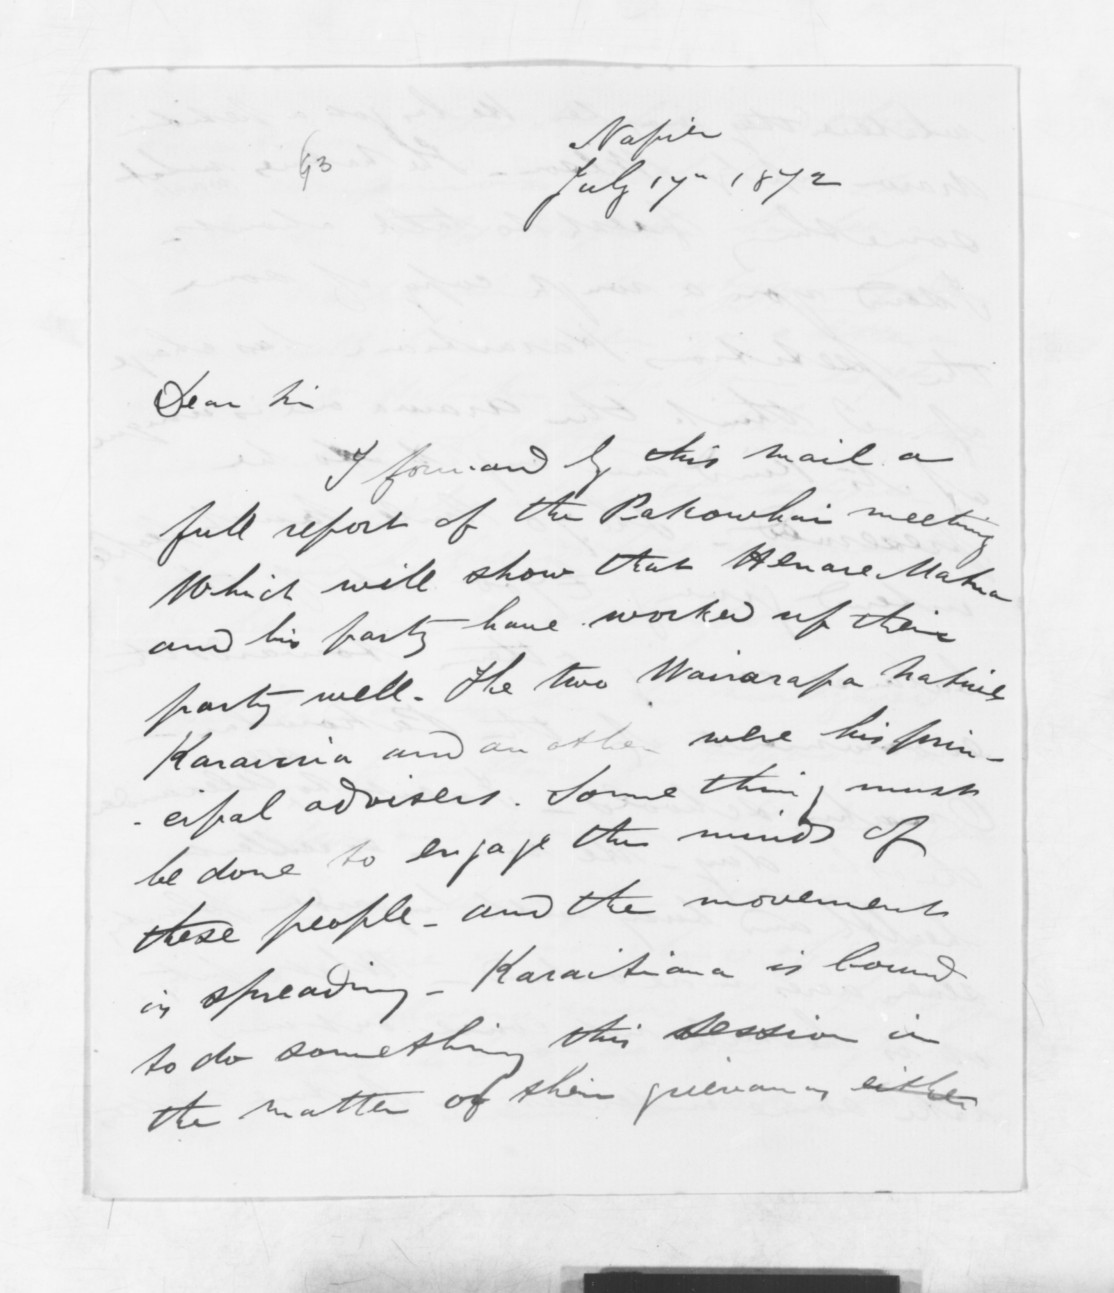 93
Napier
July 17th 1872
Dear Sir
I forward by this mail a
full report of the Pakowhai meeting
Which will show that Henare Matua
and his party have worked up their
party well. The two Wairarapa natives
Karauria and another were his prin-
-cipal advisers. Something must
be done to engage the minds of
these people - and the movement
is spreading - Karaitiana is bound
to do something this session in
the matter of their grievances either